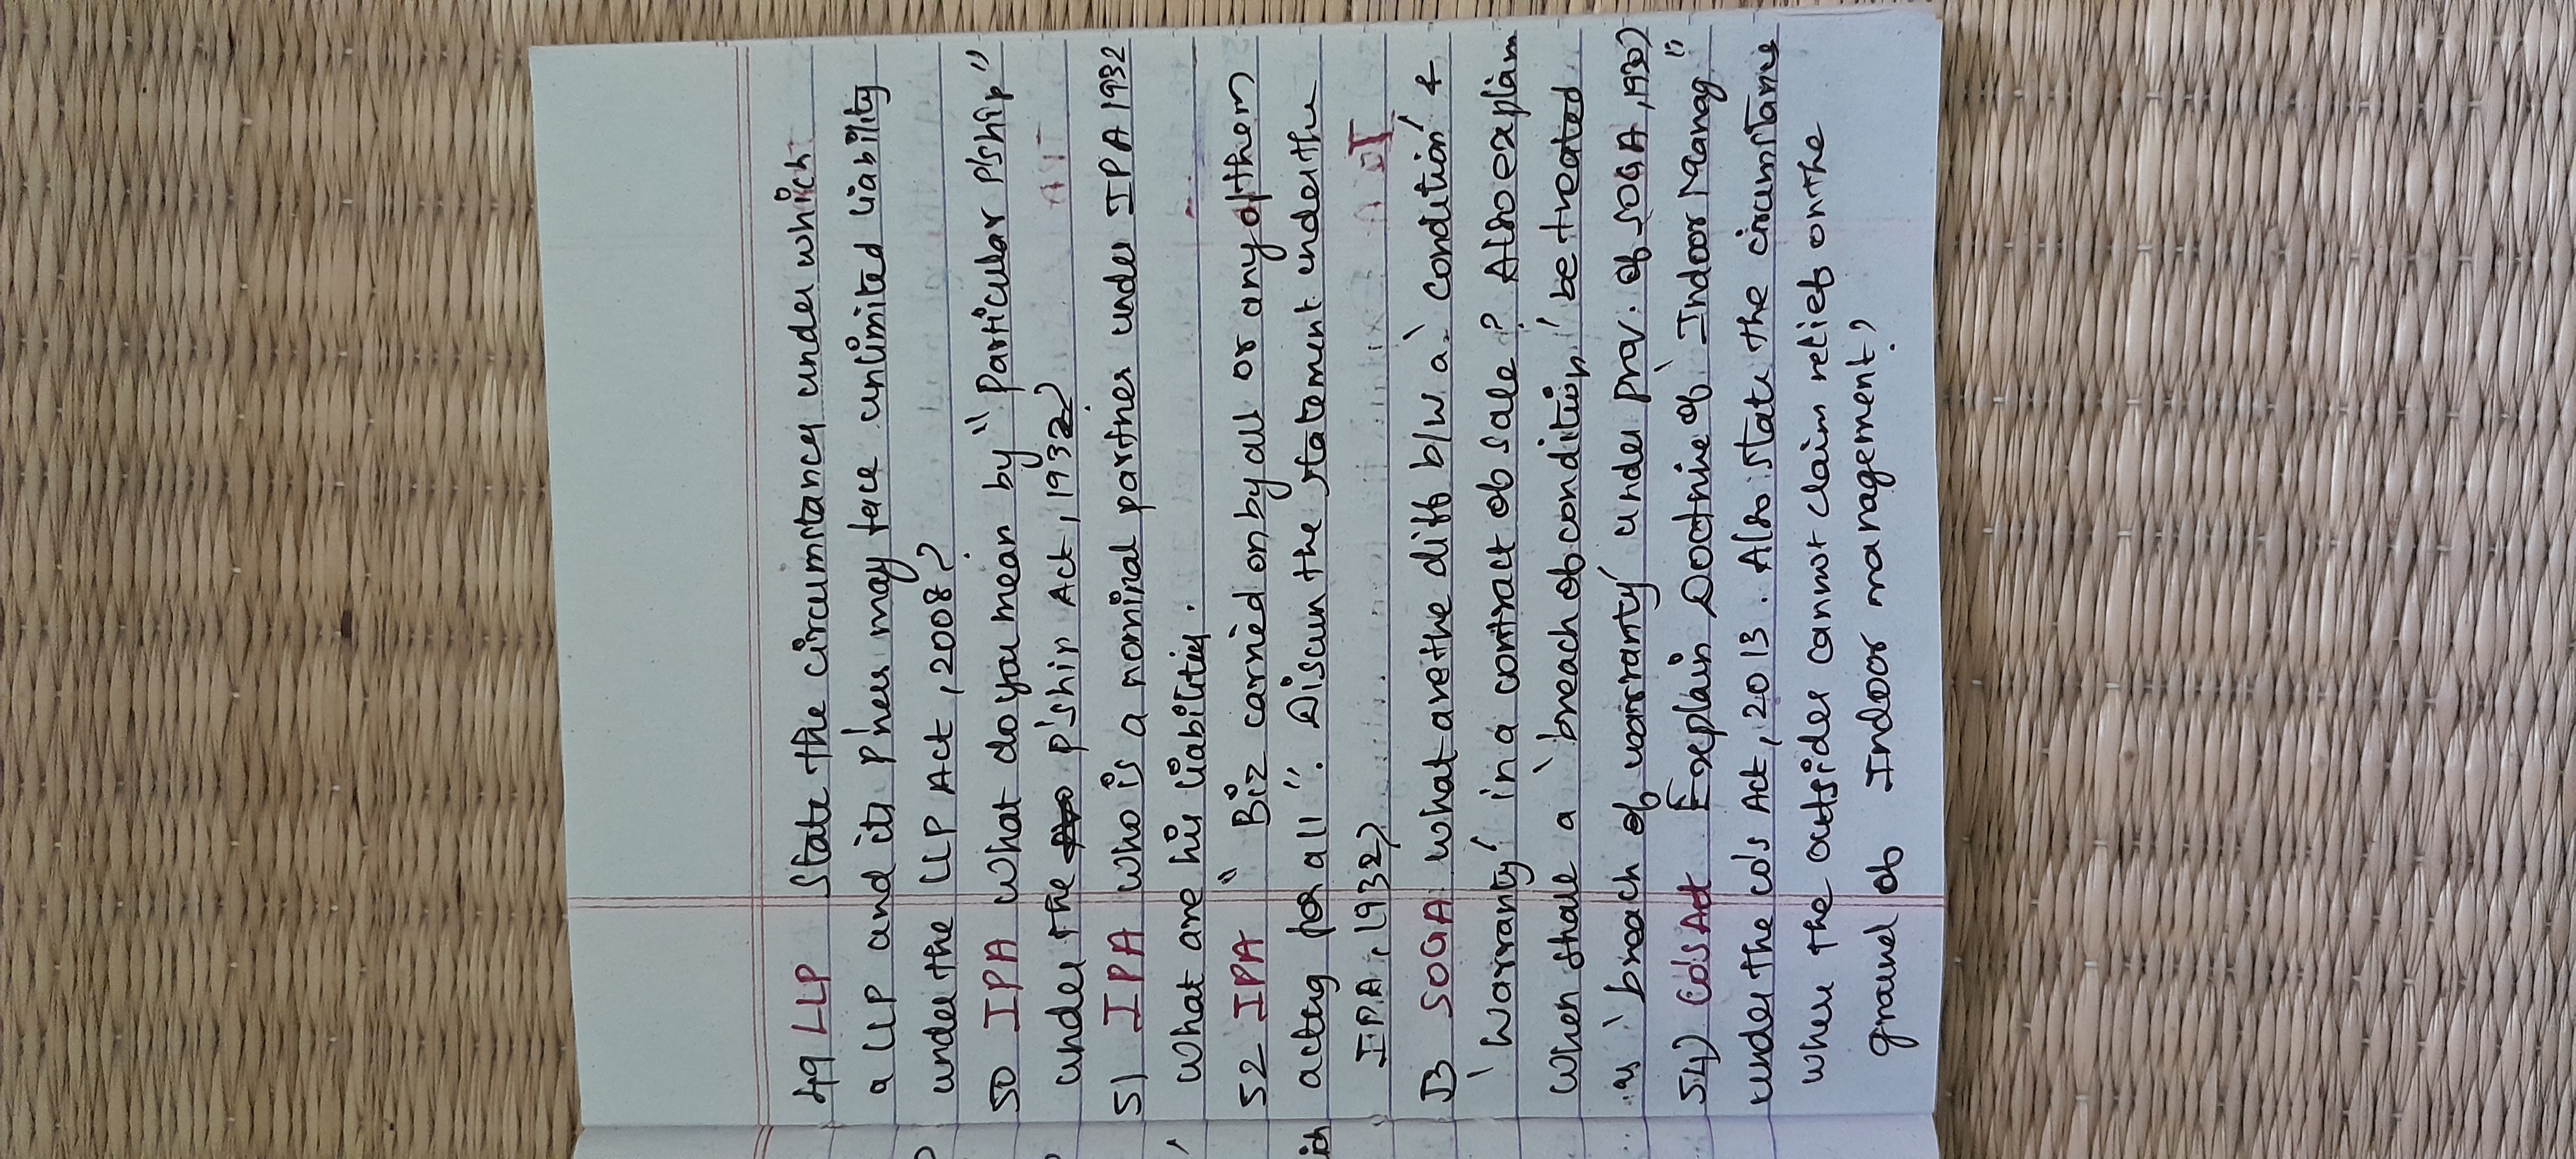 49 LLP State the circumstances under which
a LLP and its P'ners may face unlimited liability
under the LLP Act, 2008?
50 IPA What do you mean by "Particular P'ship"
under the P'ship Act, 1932?
51 IPA Who is a nominal partner under IPA 1932
What are his liabilities.
52 IPA "Biz carried on by all or any of them
acting for all". Discuss the statement under the
IPA, 1932?
53 SOGA What are the diff b/w a 'Condition' &
'Warranty' in a contract of sale? Also explain
When shall a 'breach of condition' be treated
as 'breach of warranty' under prov. of SOGA, 1930?
54) Co's Act Explain Doctrine of 'Indoor Manag"
under the Co's Act, 2013. Also state the circumstances
where the outsider cannot claim relief on the
ground of Indoor management?